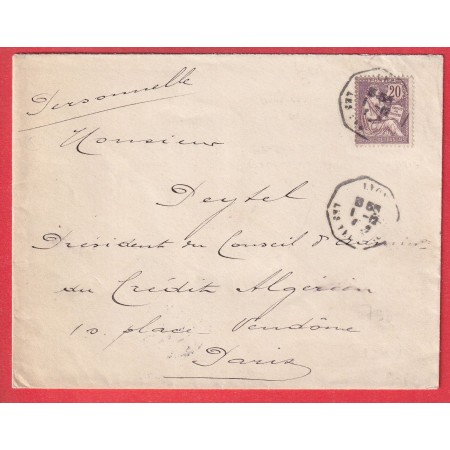 Personnelle
Monsieur
Deytel
Président du Conseil d'
du Crédit Algérien
10. place Vendôme
Paris
20
LYON
LYON